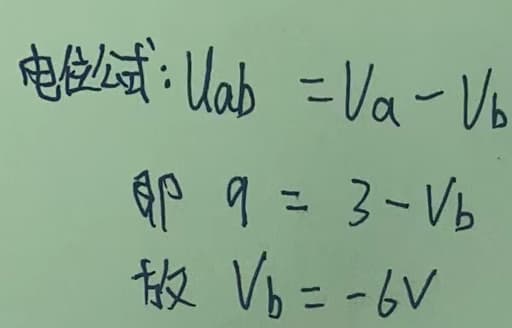 电位公式:Uab = Va - Vb
即 9 = 3 - Vb
故 Vb = -6V